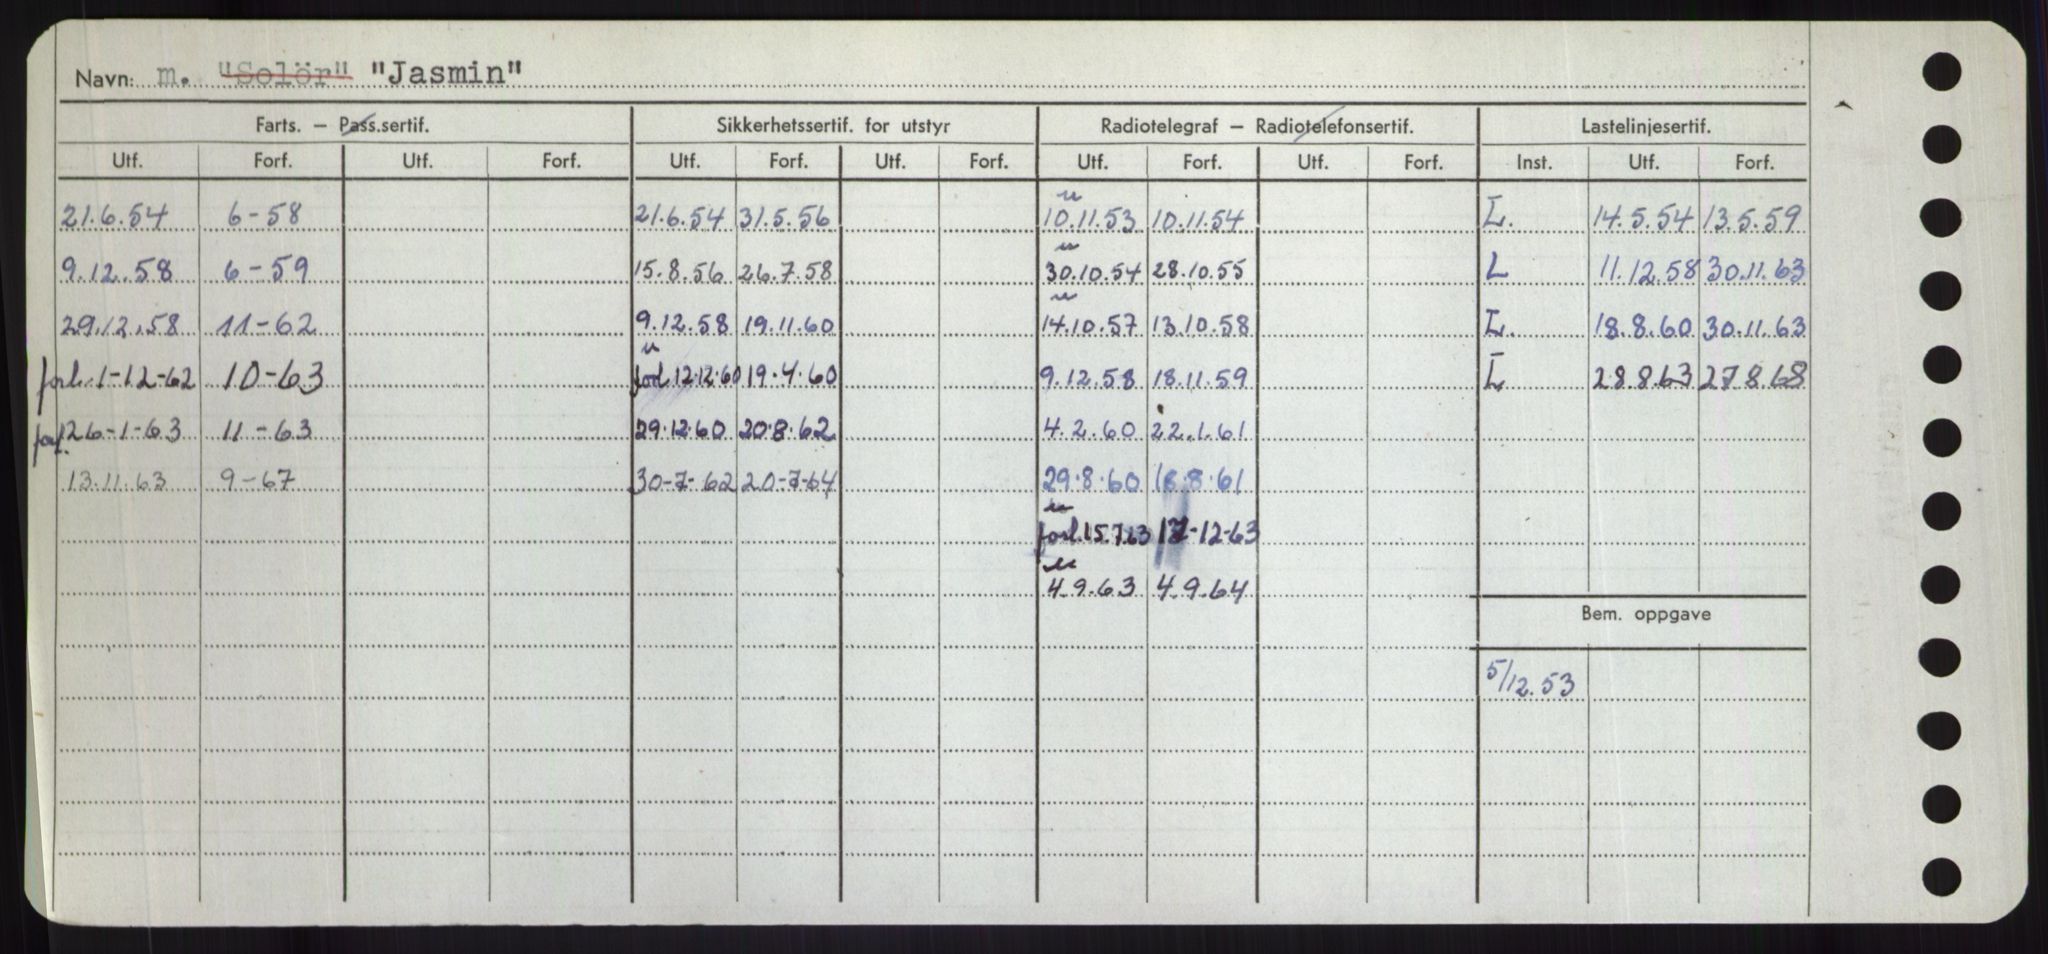 Navn: m. "Solör" "Jasmin"
Farts. — Pass.sertif. Sikkerhetssertif. for utstyr Radiotelegraf — Radiotelefonsertif. Lastelinjesertif.
Utf. Forf. Utf. Forf. Utf. Forf. Utf. Forf. Utf. Forf. Utf. Forf. Inst. Utf. Forf.
21.6.54 6-58 21.6.54 31.5.56 u 10.11.53 10.11.54 L. 14.5.54 13.5.59
9.12.58 6-59 15.8.56 26.7.58 u 30.10.54 28.10.55 L 11.12.58 30.11.63
29.12.58 11-62 9.12.58 19.11.60 u 14.10.57 13.10.58 L. 18.8.60 30.11.63
forl. 1-12-62 10-63 u forl. 12.12.60 19.4.60 9.12.58 18.11.59 L 28.8.63 27.8.68
forl. 26-1-63 11-63 29.12.60 20.8.62 4.2.60 22.1.61
13.11.63 9-67 30-7-62 20-7-64 29.8.60 18.8.61
u forl. 15.7.63 -12-63
u 4.9.63 4.9.64
Bem. oppgave
5/12.53